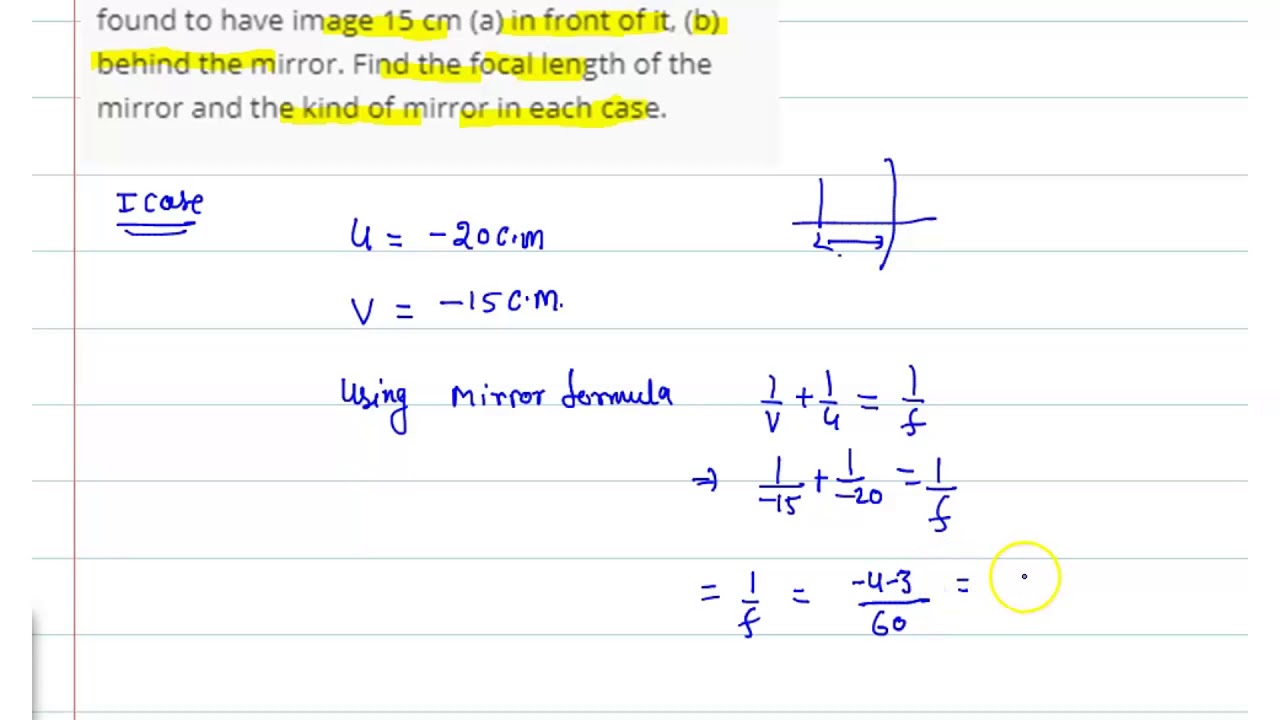 found to have image 15 cm (a) in front of it, (b)
behind the mirror. Find the focal length of the
mirror and the kind of mirror in each case.
I case
u = -20 c.m
v = -15 c.m.
Using mirror formula 1/v + 1/u = 1/f
⇒ 1/-15 + 1/-20 = 1/f
= 1/f = -4-3/60 =